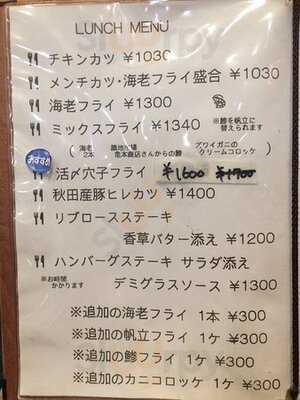 LUNCH MENU
チキンカツ ¥1030
メンチカツ・海老フライ盛合 ¥1030
海老フライ ¥1300
ミックスフライ ¥1340
※鯵を帆立に
替えられます
(海老 2本 築地市場 亀本商店さんからの鯵 ズワイガニの クリームコロッケ)
おすすめ
活〆穴子フライ ¥1600 ¥1700
秋田産豚ヒレカツ ¥1400
リブロースステーキ
香草バター添え ¥1200
ハンバーグステーキ サラダ添え
※お時間
かかります
デミグラスソース ¥1300
※追加の海老フライ 1本 ¥300
※追加の帆立フライ 1ケ ¥300
※追加の鯵フライ 1ケ ¥300
※追加のカニコロッケ 1ケ ¥300